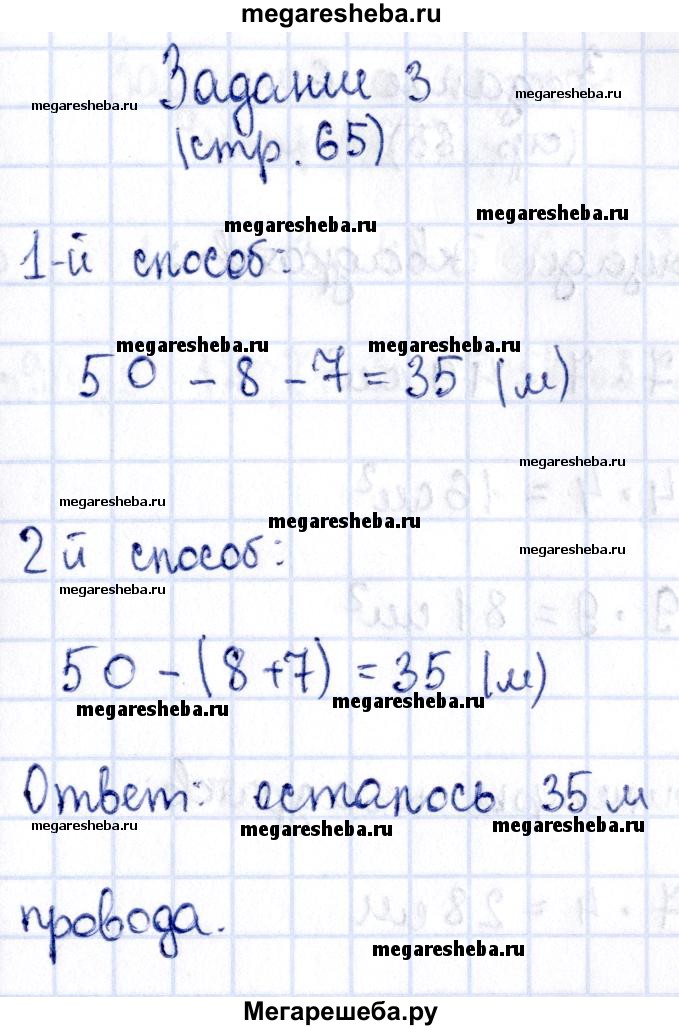 megaresheba.ru
Задание 3
megaresheba.ru megaresheba.ru
(стр. 65)
megaresheba.ru megaresheba.ru
1-й способ:
megaresheba.ru megaresheba.ru
50 - 8 - 7 = 35 (м)
megaresheba.ru
megaresheba.ru
megaresheba.ru
2й способ:
megaresheba.ru
megaresheba.ru
50 - (8+7) = 35 (м)
megaresheba.ru megaresheba.ru
Ответ: осталось 35 м
megaresheba.ru megaresheba.ru megaresheba.ru
провода.
megaresheba.ru
Мегарешеба.ру